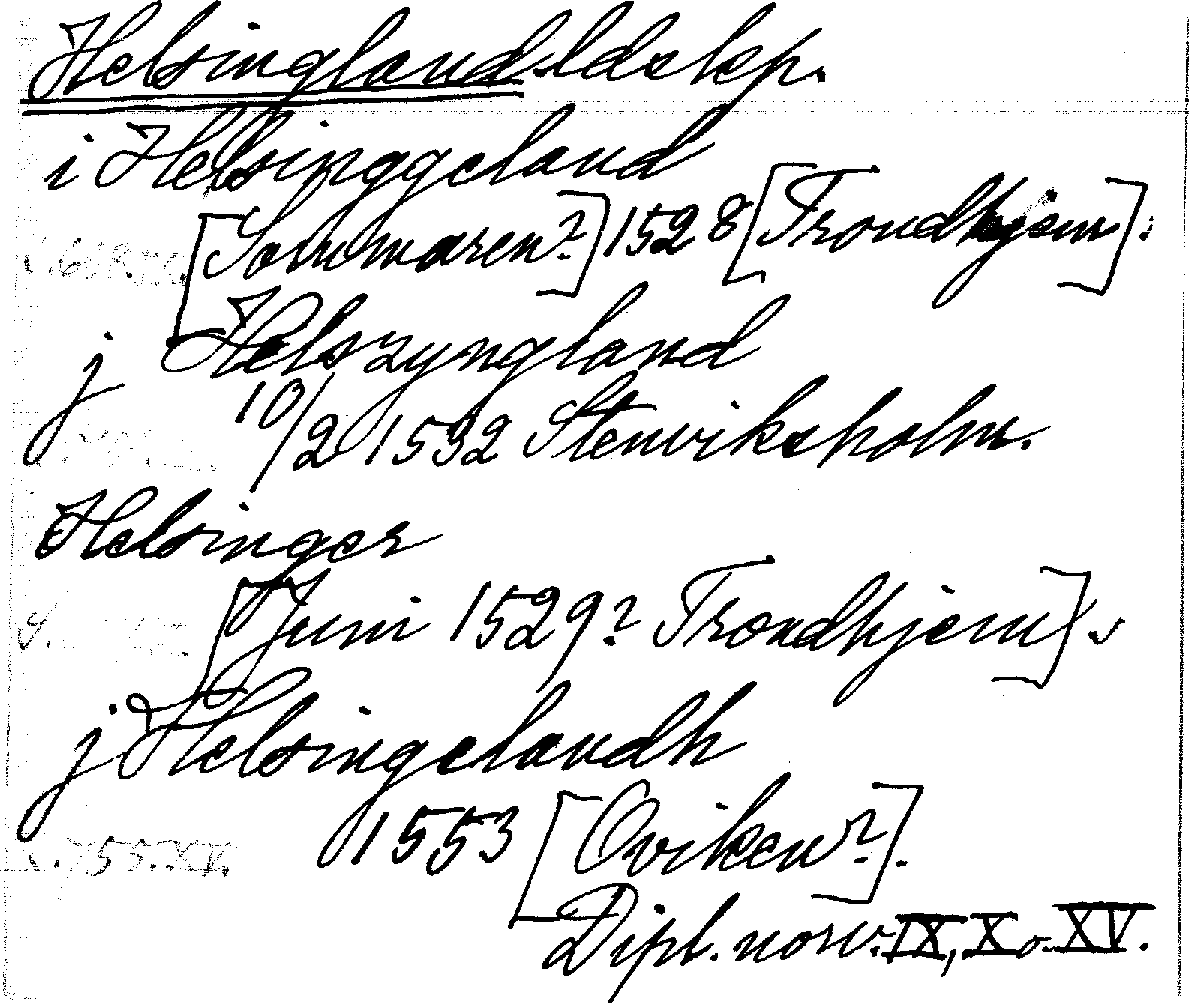 Helsingland ldskp.
i Helsinggeland
[Sommaren?] 1528 [Trondhjem]:
j Helszyngland
10/2 1532 Stenviksholm.
Helsinger
[Juni 1529? Trondhjem].
j Helsingelandh
1553 [Oviken?].
Dipl. norv. IX, X o. XV.